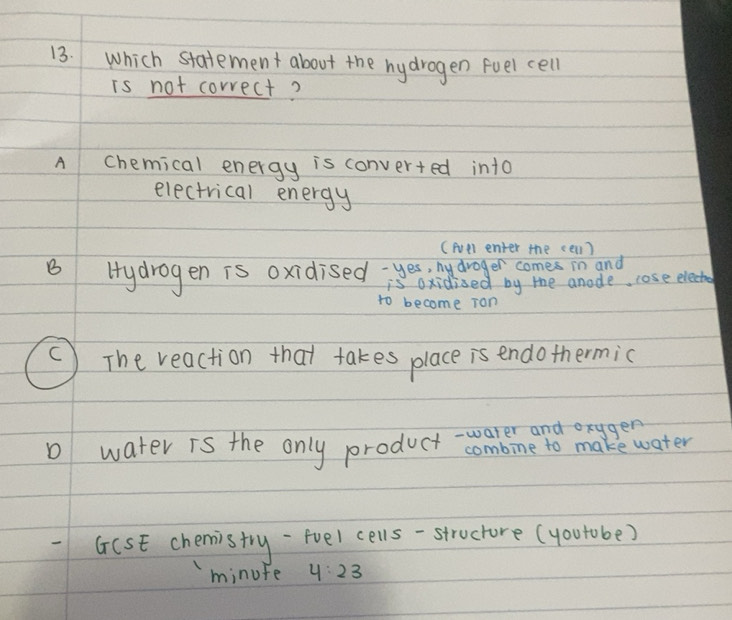 13. Which statement about the hydrogen fuel cell
is not correct ?
A Chemical energy is converted into
electrical energy
(Fuel enter the cell)
B Hydrogen is oxidised - yes, hydroger comes in and
is oxidised by the anode. lose electro
to become ion
C The reaction that takes place is endothermic
D water is the only product - water and oxygen
combine to make water
- GCSE chemistry - fuel cells - structure (youtube)
minute 4:23